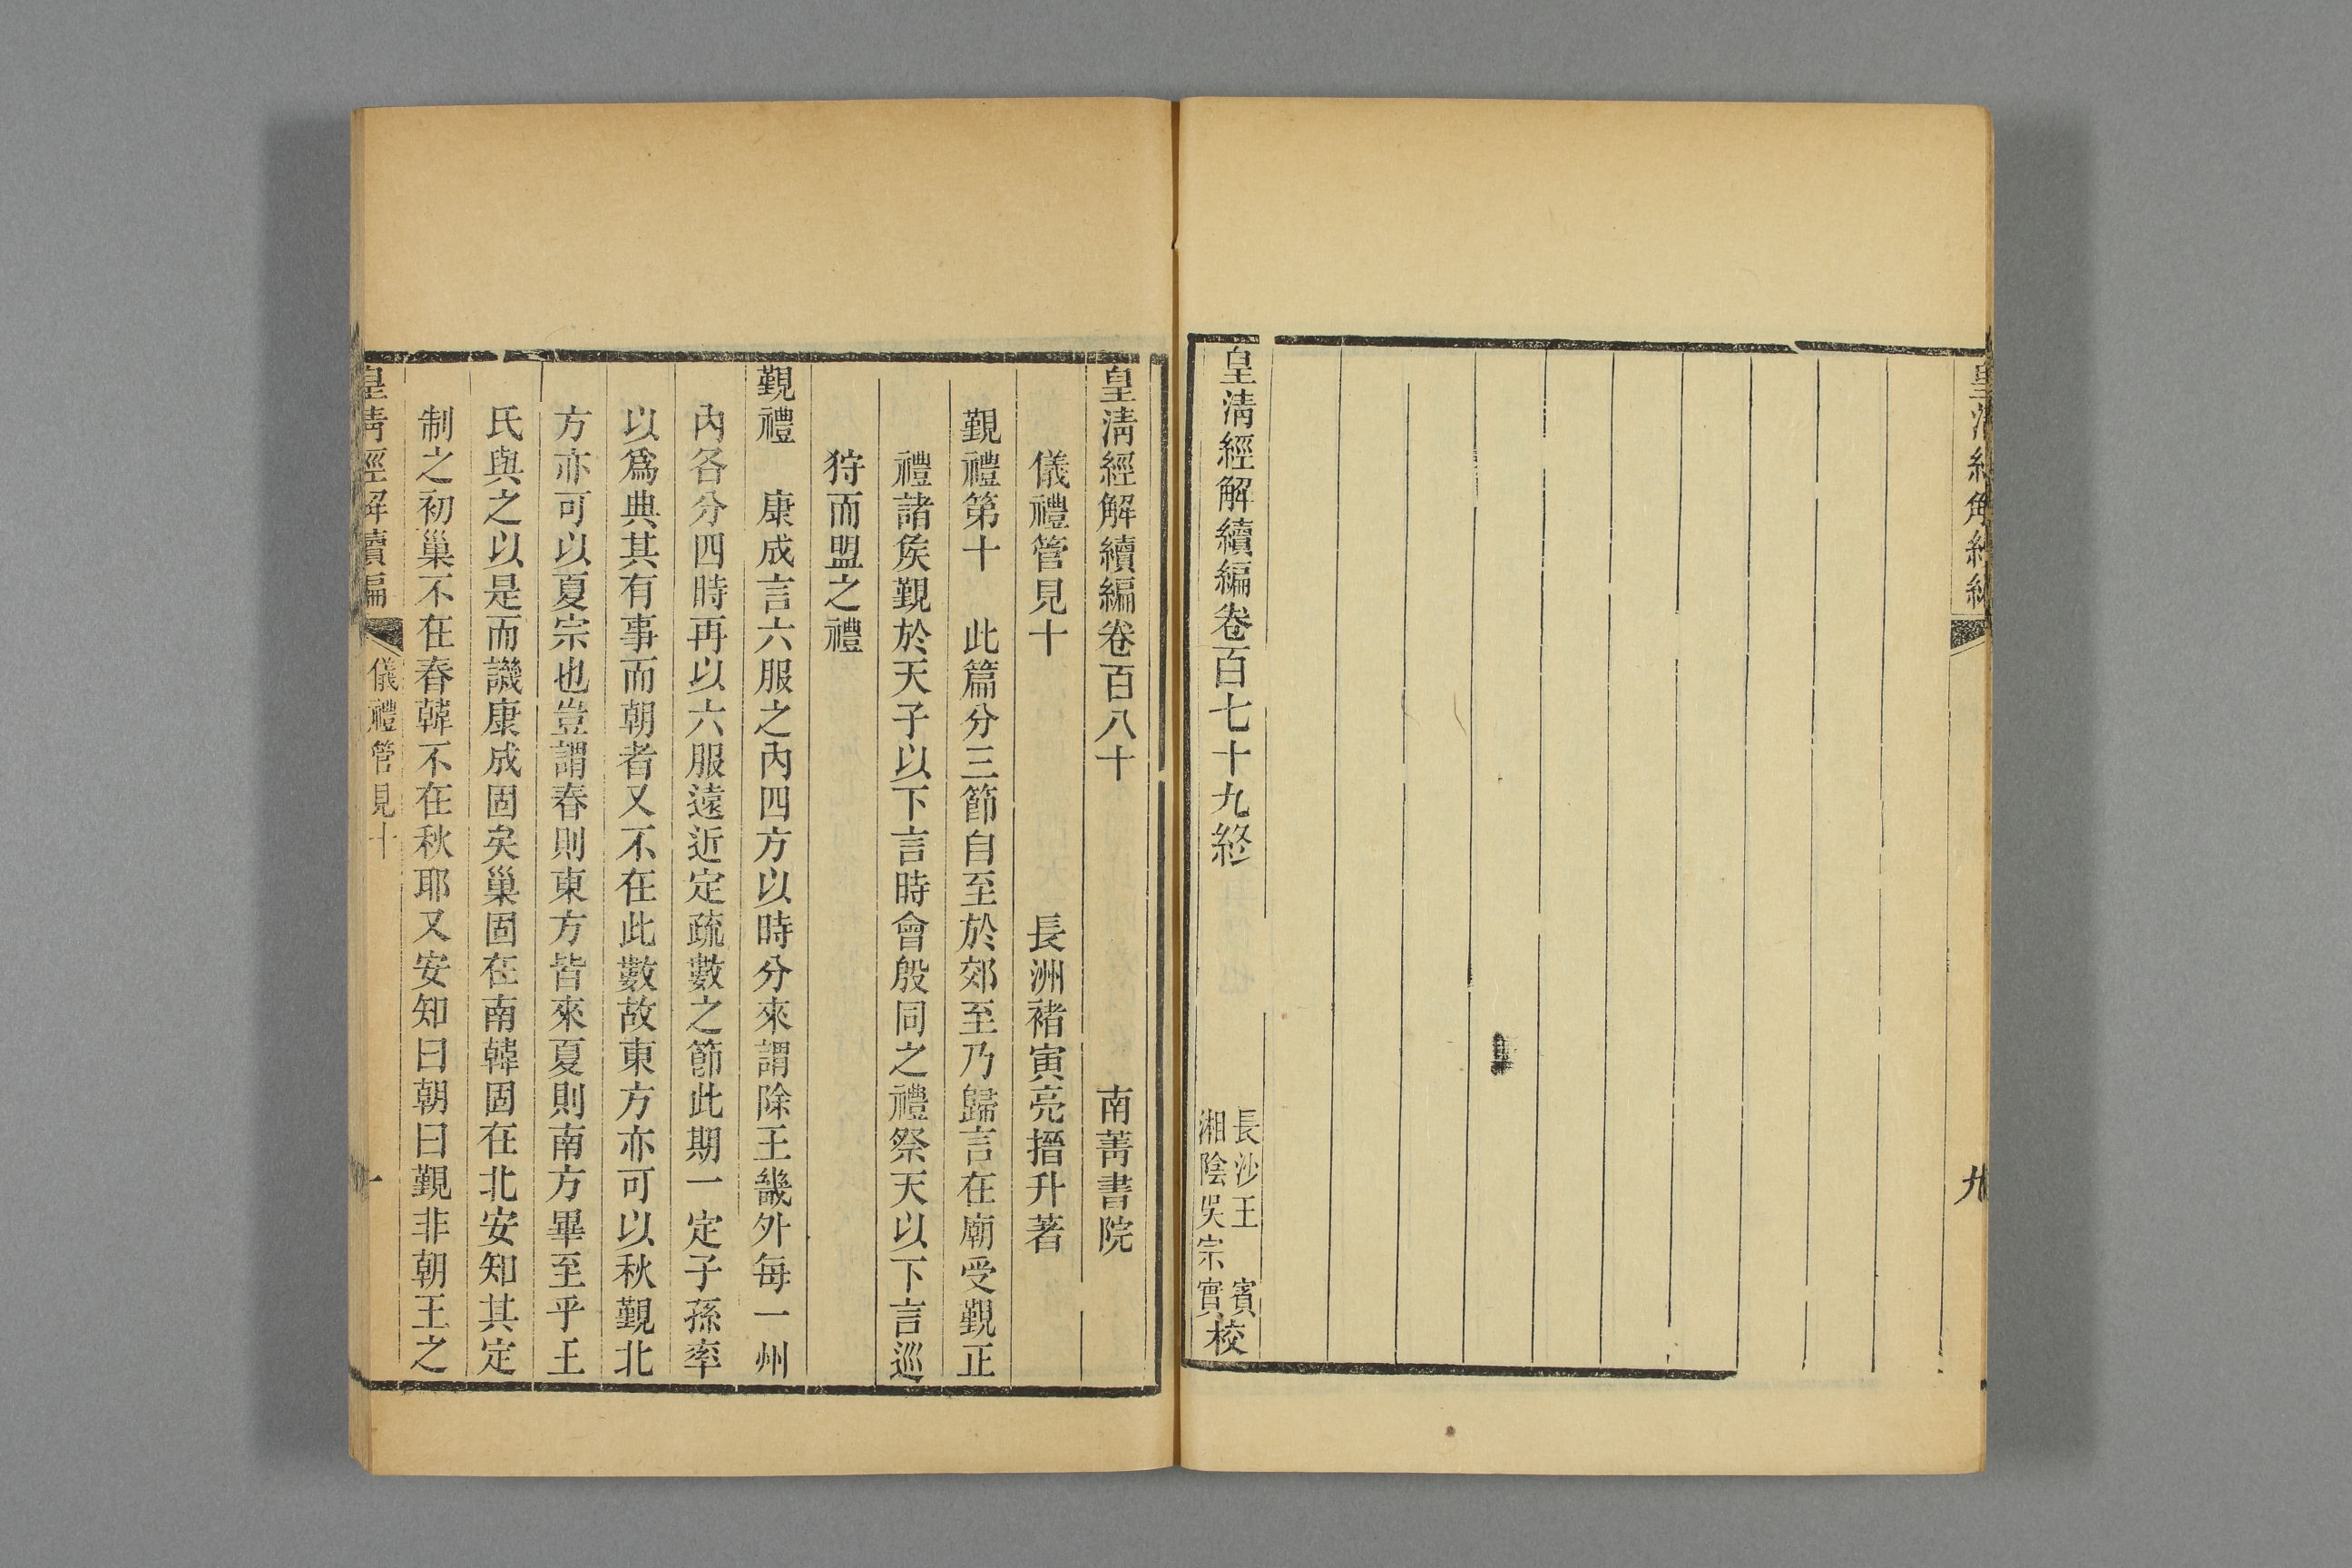 皇淸經解續編
九
皇淸經解續編卷百七十九終
長沙王 賓
湘陰吳宗實校
皇淸經解續編卷百八十 南菁書院
儀禮管見十 長洲褚寅亮搢升著
覲禮第十 此篇分三節自至於郊至乃歸言在廟受覲正
禮諸矦覲於天子以下言時會殷同之禮祭天以下言巡
狩而盟之禮
覲禮 康成言六服之內四方以時分來謂除王畿外每一州
內各分四時再以六服遠近定疏數之節此期一定子孫率
以爲典其有事而朝者又不在此數故東方亦可以秋覲北
方亦可以夏宗也豈謂春則東方皆來夏則南方畢至乎王
氏與之以是而譏康成固矣巢固在南韓固在北安知其定
制之初巢不在春韓不在秋耶又安知曰朝曰覲非朝王之
皇淸經解續編 儀禮管見十 一